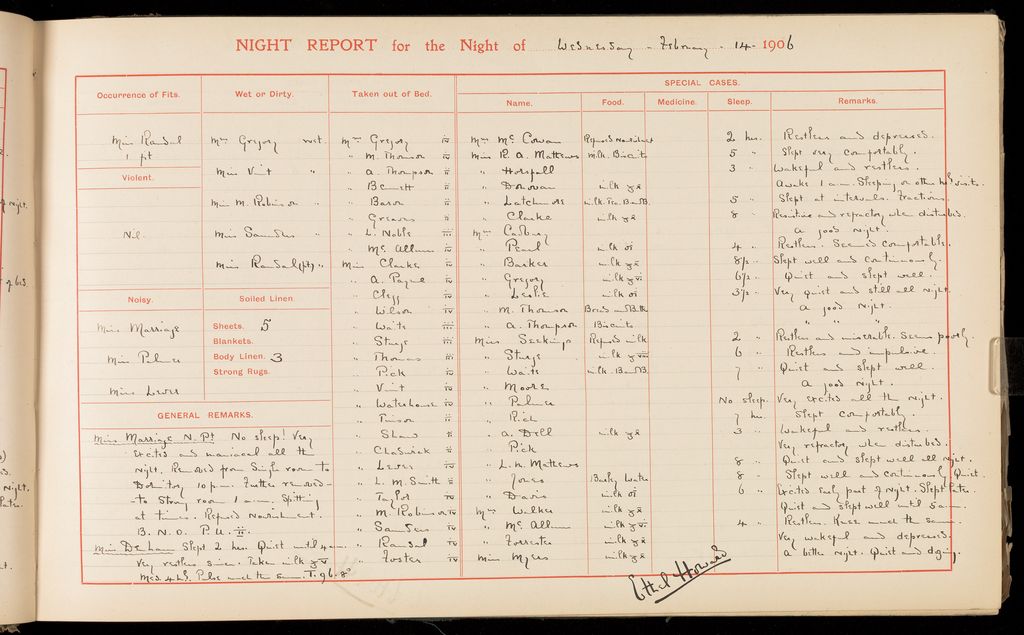 NIGHT REPORT for the Night of Wednesday - February - 14 - 1906
SPECIAL CASES.
Occurrence of Fits. Wet or Dirty. Taken out of Bed. Name. Food. Medicine. Sleep. Remarks.
Miss Randal
1 pt
Violent.
Nil.
Noisy.
Miss Marriage
Miss Palmer
Miss Lewes
Mrs Gregory wet
Miss Vint "
Miss M. Robinson "
Miss Saunders "
Miss Randal (pt) "
Soiled Linen
Sheets. 5
Blankets.
Body Linen. 3
Strong Rugs.
GENERAL REMARKS.
Miss Marriage N. Pt No sleep! Very
excited and maniacal all the
night. Removed from Single room to
Dormitory 10 p.m. Further removed
to Strong room 1 a.m. Spitting
at times. Refused nourishment.
B. N. O. P. U. ii.
Miss Denham Slept 2 hrs. Quiet until 4 a.m.
Very restless since. Taken milk
Med. 4 h.s. Pulse much the same. T. 96.8°
Mrs Gregory iv
" M. Thomson iv
" A. Thompson iv
" Bennett ii
" Baron ii
" Greaves ii
" L. Noble iii
" Mc Allum iv
Miss Clarke iv
" A. Payne iv
" Clegg iv
" Wilson iv
" Waite iii
" Sturge iii
" Thomas iii
" Pick iv
" Vint iv
" Waterhouse iv
" Tuison ii
" Shaw ii
" Chadwick ii
" Lewes iv
" L. M. Smith ii
" Taylor iv
" M. Robinson iv
" Saunders iv
" Randal iv
" Foster iv
Mrs Mc Cowan Refused nourishment 2 hrs. Restless and depressed.
Miss R. A. Mathews milk. Biscuits 5 " Slept very comfortably.
" Horsfall 3 " Wakeful and restless.
" Donovan milk Awake 1 a.m. Sleeping on other hrs visits.
" Latchmore milk. Tea. B and B. 5 " Slept at intervals. Fractious.
" Clarke milk 8 " Resistive and refractory when disturbed.
Mrs Cadbury A good night.
" Pearl milk 4 " Restless. Seemed comfortable.
" Barker milk 8½ " Slept well and continuously.
" Gregory milk 6½ " Quiet and slept well.
" Leslie milk 3½ " Very quiet and still all night.
" M. Thomson Bread and Butter A good night.
" A. Thompson Biscuits " " "
Miss Seekings Refused milk 2 " Restless and miserable. Seems poorly.
" Sturge milk 6 " Restless and impulsive.
" Waite milk. B and B. 7 " Quiet and slept well.
" Moore A good night.
" Palmer No sleep. Very excited all the night.
" Rich 7 hrs. Slept comfortably.
" A. Dell milk 3 " Wakeful and restless.
" Pick Very refractory when disturbed.
" L. M. Mathews 8 " Quiet and slept well all night.
" Jones Barley Water 8 " Slept well and continuously. Quiet.
" Davis milk 6 " Excited early part of night. Slept later.
Mrs Walker milk Quiet and slept well until 5 a.m.
" Mc Allum milk 4 " Restless. Knee much the same.
" Forrester milk Very wakeful and depressed.
Miss Myers milk A better night. Quiet and dozing.
Ethel Howard